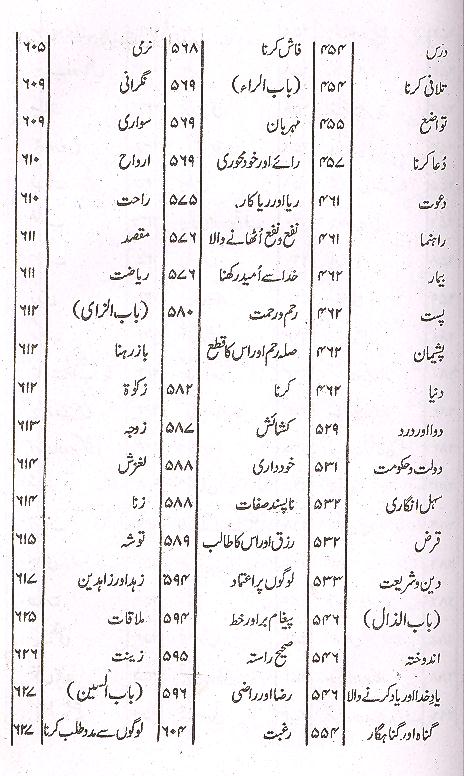 درس ۴۵۴
تلافی کرنا ۴۵۴
تواضع ۴۵۵
دُعا کرنا ۴۵۷
دعوت ۴۶۱
راہنما ۴۶۱
بیمار ۴۶۲
پست ۴۶۲
پشیمان ۴۶۲
دنیا ۴۶۲
دوا اور درد ۵۲۹
دولت وحکومت ۵۳۱
سہل انگاری ۵۳۲
قرض ۵۳۲
دین وشریعت ۵۳۳
(باب الذال) ۵۴۶
اندوختہ ۵۴۶
یادِ خدا اور یاد کرنے والا ۵۴۶
گناہ اور گناہگار ۵۵۴
فاش کرنا ۵۶۸
(باب الراء) ۵۶۹
مہربان ۵۶۹
رائے اور خود محوری ۵۶۹
ریا اور ریا کار ۵۷۵
نفع و نفع اُٹھانے والا ۵۷۶
خدا سے اُمید رکھنا ۵۷۶
رحم ورحمت ۵۸۰
صلہ رحم اور اس کا قطع
کرنا ۵۸۲
کشائش ۵۸۷
خودداری ۵۸۸
ناپسند صفات ۵۸۸
رزق اور اس کا طالب ۵۸۹
لوگوں پر اعتماد ۵۹۴
پیغام بر اور خط ۵۹۴
صحیح راستہ ۵۹۵
رضا اور راضی ۵۹۶
رغبت ۶۰۴
نرمی ۶۰۵
نگرانی ۶۰۹
سواری ۶۰۹
ارواح ۶۱۰
راحت ۶۱۰
مقصد ۶۱۱
ریاضت ۶۱۱
(باب الزای) ۶۱۲
باز رہنا ۶۱۲
زکوٰۃ ۶۱۲
زوجہ ۶۱۳
لغزش ۶۱۴
زنا ۶۱۴
توشہ ۶۱۵
زہد اور زاہدین ۶۱۷
ملاقات ۶۲۵
زینت ۶۲۶
(باب السین) ۶۲۷
لوگوں سے مدد طلب کرنا ۶۲۷